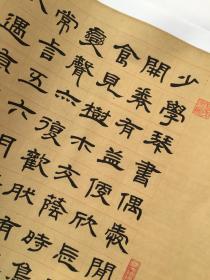 少學琴書偶愛閒
開卷有益便欣
食見樹木交蔭時鳥
變聲亦復歡肰有
常言五六月
遇涼